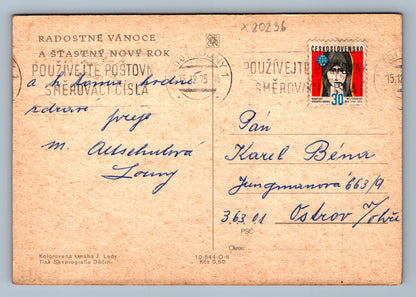 x 20236
RADOSTNÉ VÁNOCE
A ŠŤASTNÝ NOVÝ ROK
POUŽÍVEJTE POŠTOVNÍ
SMĚROVACÍ ČÍSLA
LOUNY 1
POUŽÍVEJTE
SMĚROVA
15.12
ČESKOSLOVENSKO
30
a k tomu hodně
zdraví přeje
M. Altschulová
Louny
Pán
Karel Béna
Jungmanová 663/9
363 01 Ostrov n/Ohří
PSČ
Okres:
Kolorovaná kresba J. Lady
Tisk Severografia Děčín
10-544-O-6
Kčs 0,60